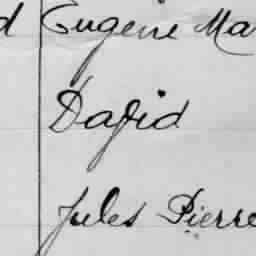 d Eugène Ma
David
Jules Pierre